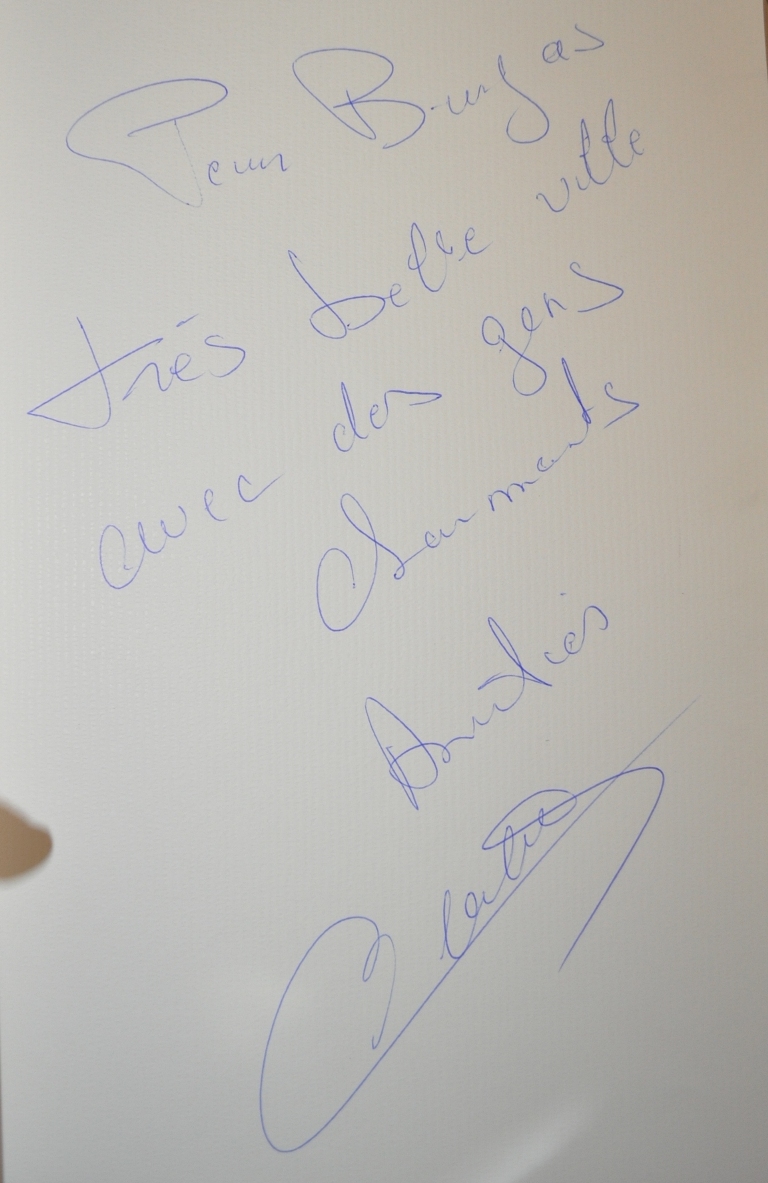 Pour Burgas
très belle ville
avec des gens
charmants
Amitiés